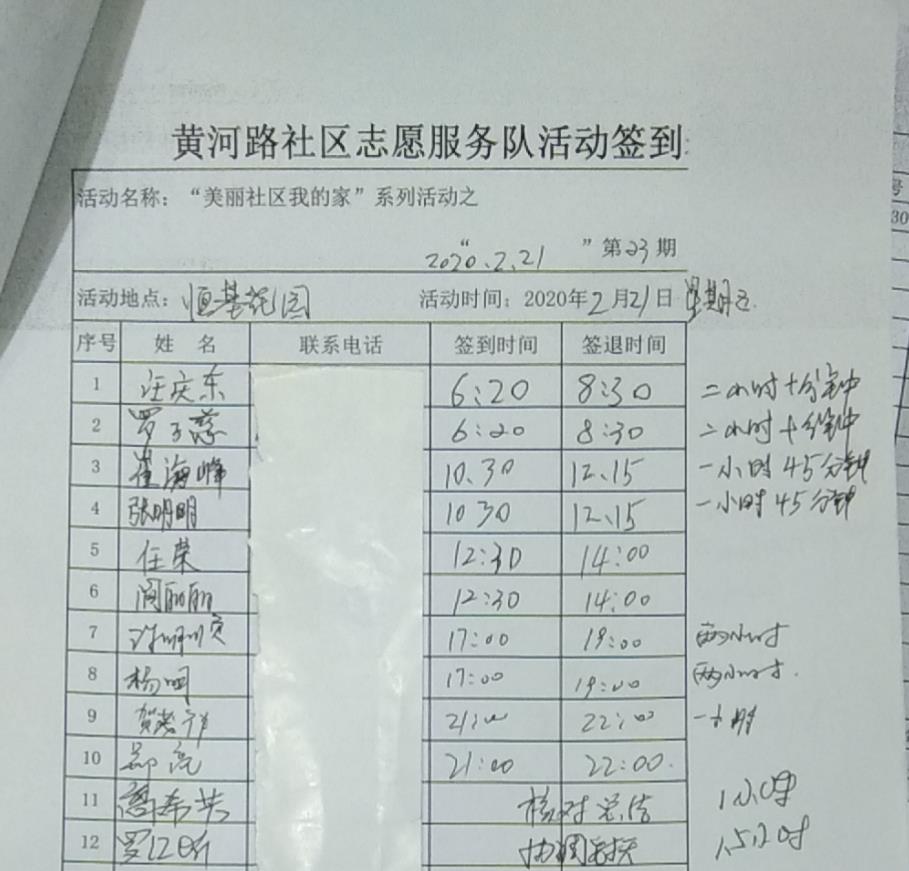 黄河路社区志愿服务队活动签到
活动名称：“美丽社区我的家”系列活动之
2020.2.21
“ ”第23期
活动地点：恒基花园 活动时间：2020年2月21日 星期五.
序号 姓名 联系电话 签到时间 签退时间
1 汪庆东 6:20 8:30 二小时十分钟
2 罗子慈 6:20 8:30 二小时十分钟
3 崔海峰 10.30 12.15 一小时45分钟
4 张明明 10 30 12.15 一小时45分钟
5 任荣 12:30 14:00
6 阎丽丽 12:30 14:00
7 17:00 19:00 两小时
8 杨明 17:00 19:00 两小时.
9 21:00 22:00
10 郑亮 21:00 22:00.
11 核对总结
12 协调
30